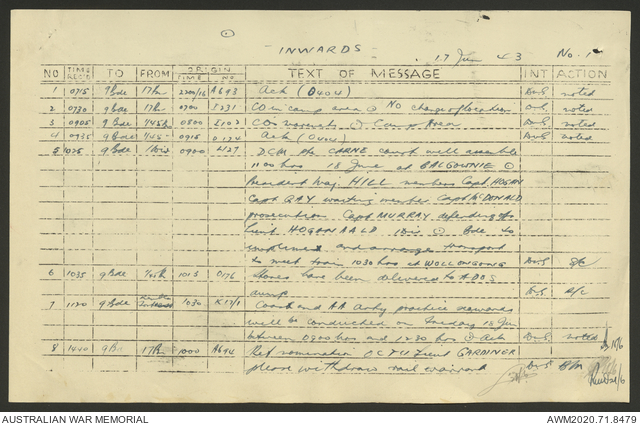 INWARDS
17 Jun 43 No. 1
NO TIME REC'D TO FROM ORIGIN TIME NO TEXT OF MESSAGE INT ACTION
1 0715 9Bde 17Bn 2200/16 A693 Ack (O404) noted
2 0730 9Bde 17Bn 0700 I231 COs in camp area @ No change of location noted
3 0905 9Bde 45Bn 0800 Camp Area noted
4 0935 9Bde 45Bn 0915 Ack noted
5 1025 9Bde 1Div 0900 L127 DCM Pte CARNE court will assemble
1100 hrs 18 June at BALGOWNIE @
President Maj. HILL members Capt. HOGAN
Capt RAY waiting member Capt McDONALD
prosecution Capt MURRAY defending
Lieut HOGAN AALD 1Div @ Bde to
implement and arrange transport
to meet train 1030 hrs at WOLLONGONG
6 1035 9Bde 1015 O176 Stores have been delivered to ADOS
7 1120 9Bde 1030 Coast and AA Arty practice seawards
will be conducted on Tuesday 18 Jun
between 0900 hrs and 1230 hrs @ Ack noted
8 1440 9Bde 17Bn 1000 A694 Ref nomination OCTU Lieut GARDINER BM
please withdraw
AUSTRALIAN WAR MEMORIAL AWM2020.71.8479